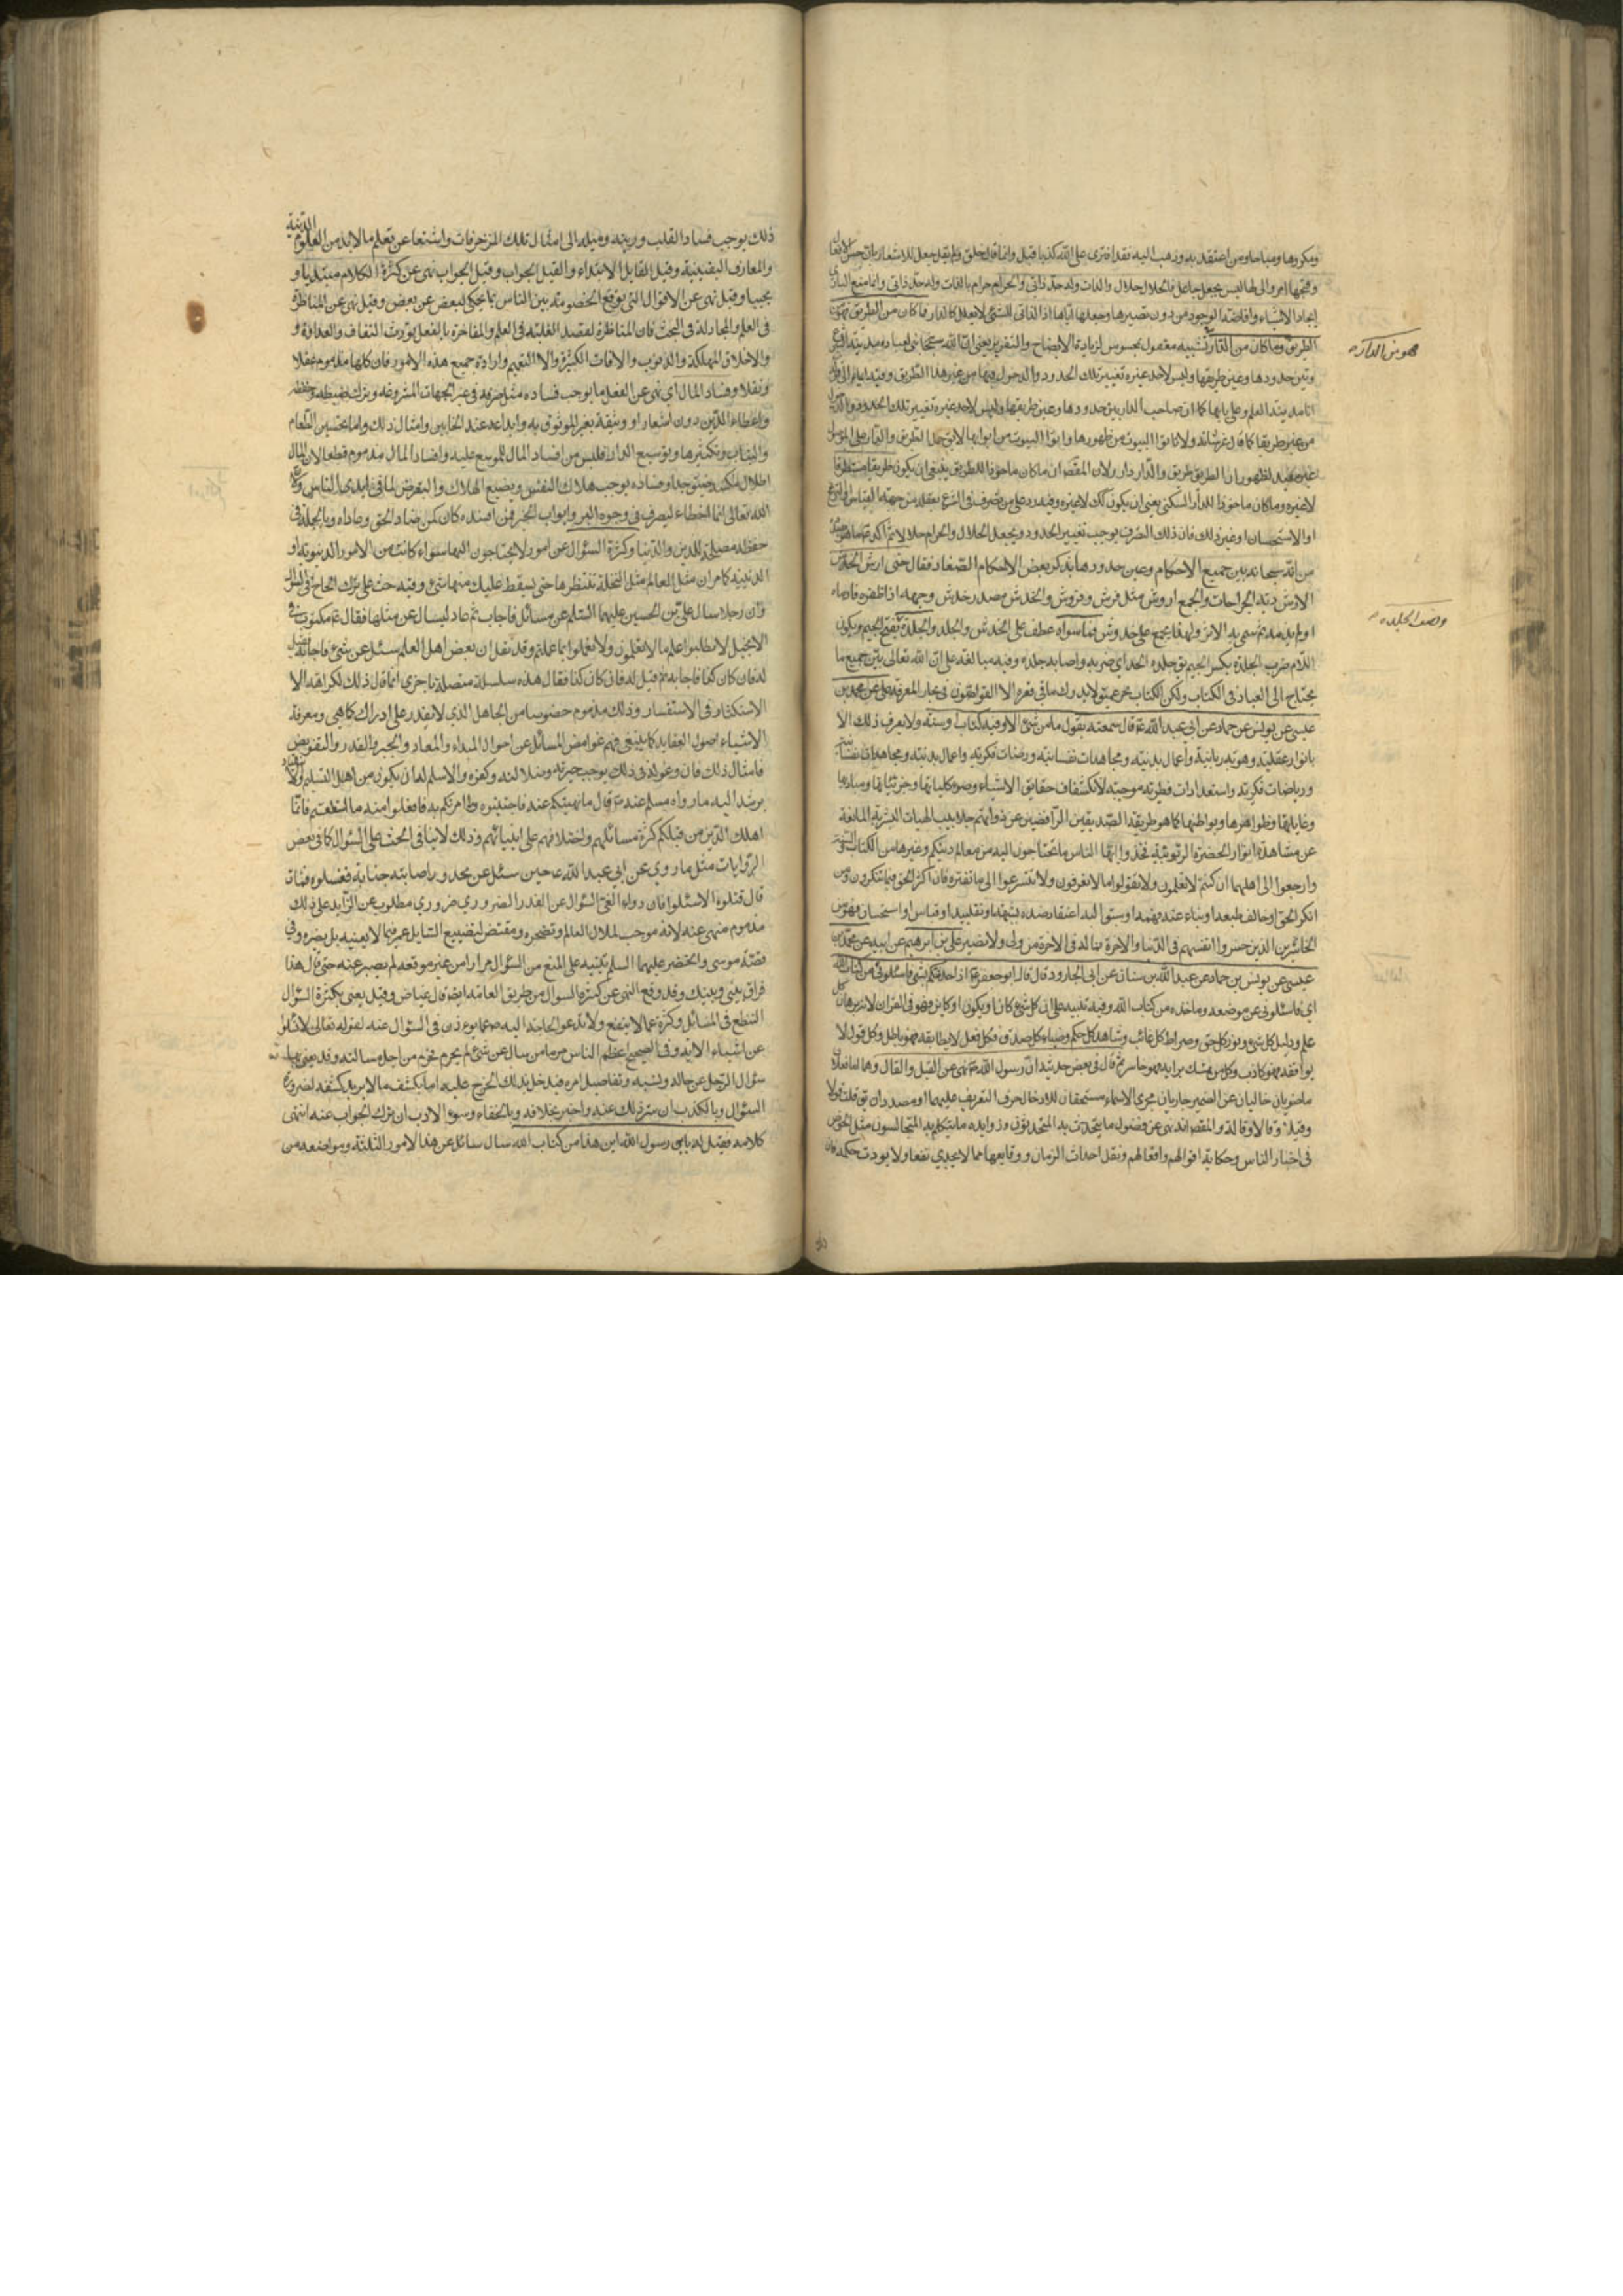 ومكروها ومباحا ومن اعتقد به وذهب اليه فقد افترى على الله كذبا قيل وانما قال خلق ولم يقل جعل للاشعار بان حسن الافعال
وقبحها امر والى لها ليس بجعل جاعل فالحلال حلال والحرام حرام بالذات وله حد ذاتى وانما منع البارى
ايجاد الاشياء وافاضة الوجود من دون تصييرها وجعلها اياها اذ الذاتى للشئ لا يعلل كالدار فما كان من الطريق فهو من
الطريق وما كان من الدار تشبيه معقول بمحسوس لزيادة الايضاح والتقرير يعنى ان الله سبحانه
وبين حدودها وعين طريقها وليس لاحد غيره تغيير تلك الحدود والدخول فيها من غير هذا الطريق وفيه ايماء الى قوله
انا مدينة العلم وعلى بابها كما ان صاحب الدار بين حدودها وعين طريقها وليس لاحد غيره تغيير تلك الحدود والدخول
من غير طريقها كما قال عز شانه ولا تاتوا البيوت من ظهورها واتوا البيوت من ابوابها
لظهور ان الطريق طريق والدار دار ولان المقصود ان ما كان ماخوذا للطريق ينبغى ان يكون طريقا
لا غيره وما كان ماخوذا للدار السكنى يعنى ان يكون كذلك لا غيره وفيه رد على من تصرف فى الشرع بعقله من جهة القياس
او الاستحسان او غير ذلك فان ذلك التصرف يوجب تغيير الحدود ويجعل الحلال والحرام حلالا ثم اكد
من انه سبحانه بين جميع الاحكام وعين حدودها بذكر بعض الاحكام الصغار فقال حتى ارش الخدش
الارش دية الجراحات والجمع اروش مثل فرش وفروش والخدش مصدر خدش وجهه اذا ظفره فادماه
او لم يدمه ثم سمى به الاثر ولهذا يجمع على خدوش فما سواه عطف على الخدش والجلد والجلدة بفتح الجيم وسكون
اللام ضرب الجلدة بكسر الجيم يق جلده الحد اى ضربه واصاب جلده وفيه مبالغة على ان الله تعالى بين جميع ما
يحتاج الى العباد فى الكتاب ولكن الكتاب بحر عميق لا يدرك ما فى قعره الا الغواصون فى بحار المعرفة على عن محمد بن
عيسى عن يونس عن حماد عن ابى عبد الله ع قال سمعته يقول ما من شئ الا وفيه كتاب او سنة ولا يعرف ذلك الا
بانوار عقلية وهوية ربانية واعمال بدنية ومجاهدات نفسانية
ورياضات فكرية واستعدادات فطرية موجبة لانكشاف حقايق الاشياء وصور كلياتها وجزئياتها ومباديها
وغاياتها وظواهرها وبواطنها كما هو طريقة الصديقين الرافضين عن ذواتهم جلابيب الهيات البشرية المانعة
عن مشاهدة انوار الحضرة الربوبية فخذوا ايها الناس ما تحتاجون اليه من معالم دينكم وغيرها من الكتاب والسنة
وارجعوا الى اهلهما ان كنتم لا تعلمون ولا تقولوا ما لا تعرفون ولا تتسرعوا الى ما تفتره فان اكثر الحق فيما تنكرون ومن
انكر الحق وخالف طبعه وبناء عنده فهمه او سبق اليه اعتقاد ضده بشبهة او تقليد او قياس او استحسان فهو من
الخاسرين الذين خسروا انفسهم فى الدنيا والاخرة وما له فى الاخرة من ولى ولا نصير على بن ابرهيم عن ابيه عن محمد بن
عيسى عن يونس بن حماد عن عبد الله بن سنان عن ابى الجارود قال قال ابو جعفر ع اذا حدثتكم بشئ فاسئلونى من كتاب الله
اى فاسئلونى عن موضعه وماخذه من كتاب الله وفيه تنبيه على ان كل شئ كان او يكون او كاين فهو فى القران لانه برهان كل
علم ودليل كل شئ ونور كل حق وصراط كل غائب وشاهد كل حكم وضياء كل صدق فكل فعل لا يطابقه فهو باطل وكل قول لا
يوافقه فهو كاذب وكل من تمسك برايه فهو خاسر ثم قال فى بعض حديثه ان رسول الله ص نهى عن القيل والقال وهما اما فعلان
ماضويان خاليان عن الضمير جاريان مجرى الاسماء مستحقان لادخال حرف التعريف عليهما او مصدران يق قلت قولا
وقيلا وقالا وقالة والمقصود انه نهى عن فضول ما يتحدث به المتحدثون وزوايد ما يتكلم به المتجالسون مثل الخوض
فى اخبار الناس وحكاية اقوالهم وافعالهم ونقل احداث الزمان ووقايعها مما لا يجدى نفعا ولا يورث حكمة فان
هو من الدار
ونصف الجلدة
ذلك يوجب فساد القلب ورينه وميله الى امثال تلك المزخرفات واشتغاله عن تعلم ما لا بد من العلوم الدينية
والمعارف اليقينية وقيل القايل الابتداء والقيل الجواب وقيل الجواب نهى عن كثرة الكلام مبتديا و
مجيبا وقيل نهى عن الاقوال التى توقع الخصومة بين الناس بما يحكى لبعض عن بعض وقيل نهى عن المناظرة
فى العلم والمجادلة فى البحث فان المناظرة لقصد الغلبة فى العلم والمفاخرة بالفعل يورث النفاق والعداوة و
والاخلاق المهلكة والذنوب والافات الكثيرة والا التعميم وارادة جميع هذه الامور فان كلها مذموم عقلا
ونقلا وفساد المال اى نهى عن الفعل ما يوجب فساده مثل صرفه فى غير الجهات المشروعة وترك ضبطه وحفظه
واعطاء الدين دون اشعار او وثيقة بغير الموثوق به وايداعه عند الخاين وامثال ذلك واما تحسين الطعام
والثياب وتكثيرها وتوسيع الدار فليس من افساد المال للموسع عليه وافساد المال مذموم قطعا لان المال
وفساده يوجب هلاك النفس ويضيع الهلاك والتعرض لما فى ايدى الناس
الله تعالى انما اعطاء ليصرف فى وجوه البر وابواب الخير فمن افسده كان كمن ضاد الحق وحاداه وبالجملة فى
حفظه مصلحة للدين والدنيا وكثرة السؤال عن امور لا يحتاجون اليها سواء كانت من الامور الدنيوية او
الدينية كما مر ان مثل العالم مثل النخلة تنتظرها حتى يسقط عليك منها شئ وفيه حث على ترك الحاح فى السؤال
وان رجلا سال على بن الحسين عليهما السلم عن مسائل فاجاب ثم عاد ليسال عن مثلها فقال ع مكتوب فى
الانجيل لا تطلبوا علم ما لا تعلمون ولما تعملوا بما علمتم وقد نقل ان بعض اهل العلم سئل عن شئ فاجاب فقيل
له فان كان كذا فاجابه ثم قيل له فان كان كذا فقال هذه سلسلة متصلة باخرى انما قال ذلك لكراهة
الاستكثار فى الاستفسار وذلك مذموم خصوصا من الجاهل الذى لا يقدر على ادراك كما هى ومعرفة
الاشياء اصول العقايد كما ينبغى فهم غوامض المسائل عن احوال المبداء والمعاد والجبر والقدر والتفويض
فامثال ذلك فان وغوله فى ذلك يوجب حيرته وضلالته وكفره والاسلم له ان يكون من اهل التسليم والانقياد
يرشد اليه ما رواه مسلم عنه ص قال ما نهيتكم عنه فاجتنبوه وما امرتكم به فافعلوا منه ما استطعتم فانما
اهلك الذين من قبلكم كثرة مسائلهم واختلافهم على انبيائهم وذلك لا ينافى الحث على السؤال كما فى بعض
الروايات مثل ما روى عن ابى عبد الله ع حين سئل عن مجدور اصابته جنابة فغسلوه فمات
قال قتلوه الا سئلوا فان دواء العى السؤال عن القدر الضرورى ضرورى مطلوب عن الزايد على ذلك
مذموم منهى عنه لانه موجب لملال العالم وتضجره ومقتض لتضييع السايل عمره فيما لا يعنيه بل يضره وفى
قصة موسى والخضر عليهما السلم تنبيه على المنع من السؤال مرارا من غير موقعه لم يصبر عنه حتى قال هذا
فراق بينى وبينك وقد وقع النهى عن كثرة السؤال من طريق العامة ايضا قال عياض وقيل يعنى بكثرة السؤال
التنطع فى المسائل وكثرة عما لا ينفع ولا تدعو الحاجة اليه فى السؤال عنه لقوله تعالى لا تسئلوا
عن اشياء الاية وفى الصحيح اعظم الناس جرما من سال عن شئ لم يحرم فحرم من اجل مسالته وقد يعنى بها
سؤال الرجل عن حاله ونسبه وتفاصيل امره فيدخل بذلك الحرج عليه اما بكشف ما لا يريد كشفه لضرورة
السؤال وبالكذب ان ستر ذلك عنه واخبر بخلافه وبالخفاء وسوء الادب ان ترك الجواب عنه انتهى
كلامه فقيل له يا بن رسول الله اين هذا من كتاب الله سال سائل عن هذا الامور الثلثة ومواضعه من